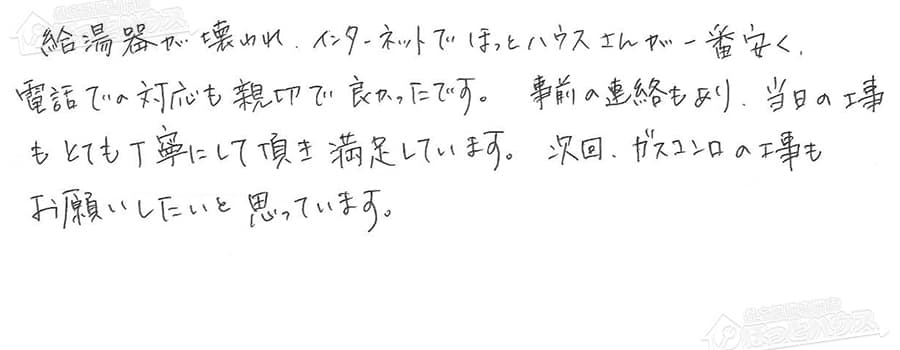 給湯器が壊われ、インターネットでほっとハウスさんが一番安く、
電話での対応も親切で良かったです。 事前の連絡もあり、当日の工事
もとても丁寧にして頂き満足しています。 次回、ガスコンロの工事も
お願いしたいと思っています。
ほっとハウス